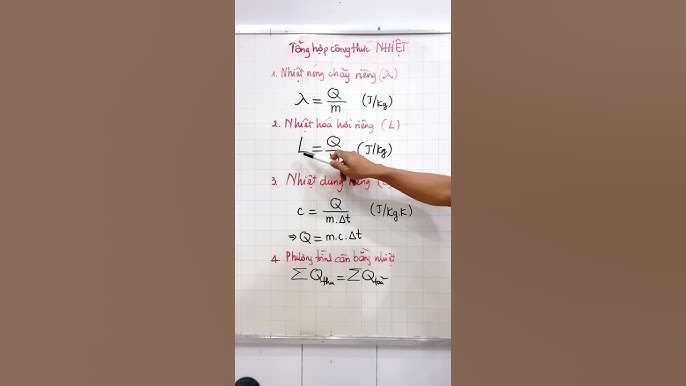 Tổng hợp công thức NHIỆT
1. Nhiệt nóng chảy riêng (λ)
λ = Q/m (J/kg)
2. Nhiệt hóa hơi riêng (L)
L = Q/ (J/kg)
3. Nhiệt dung
c = Q/m.Δt (J/kg K)
⇒ Q = m.c.Δt
4. Phương trình cân bằng nhiệt
ΣQthu = ΣQtoả